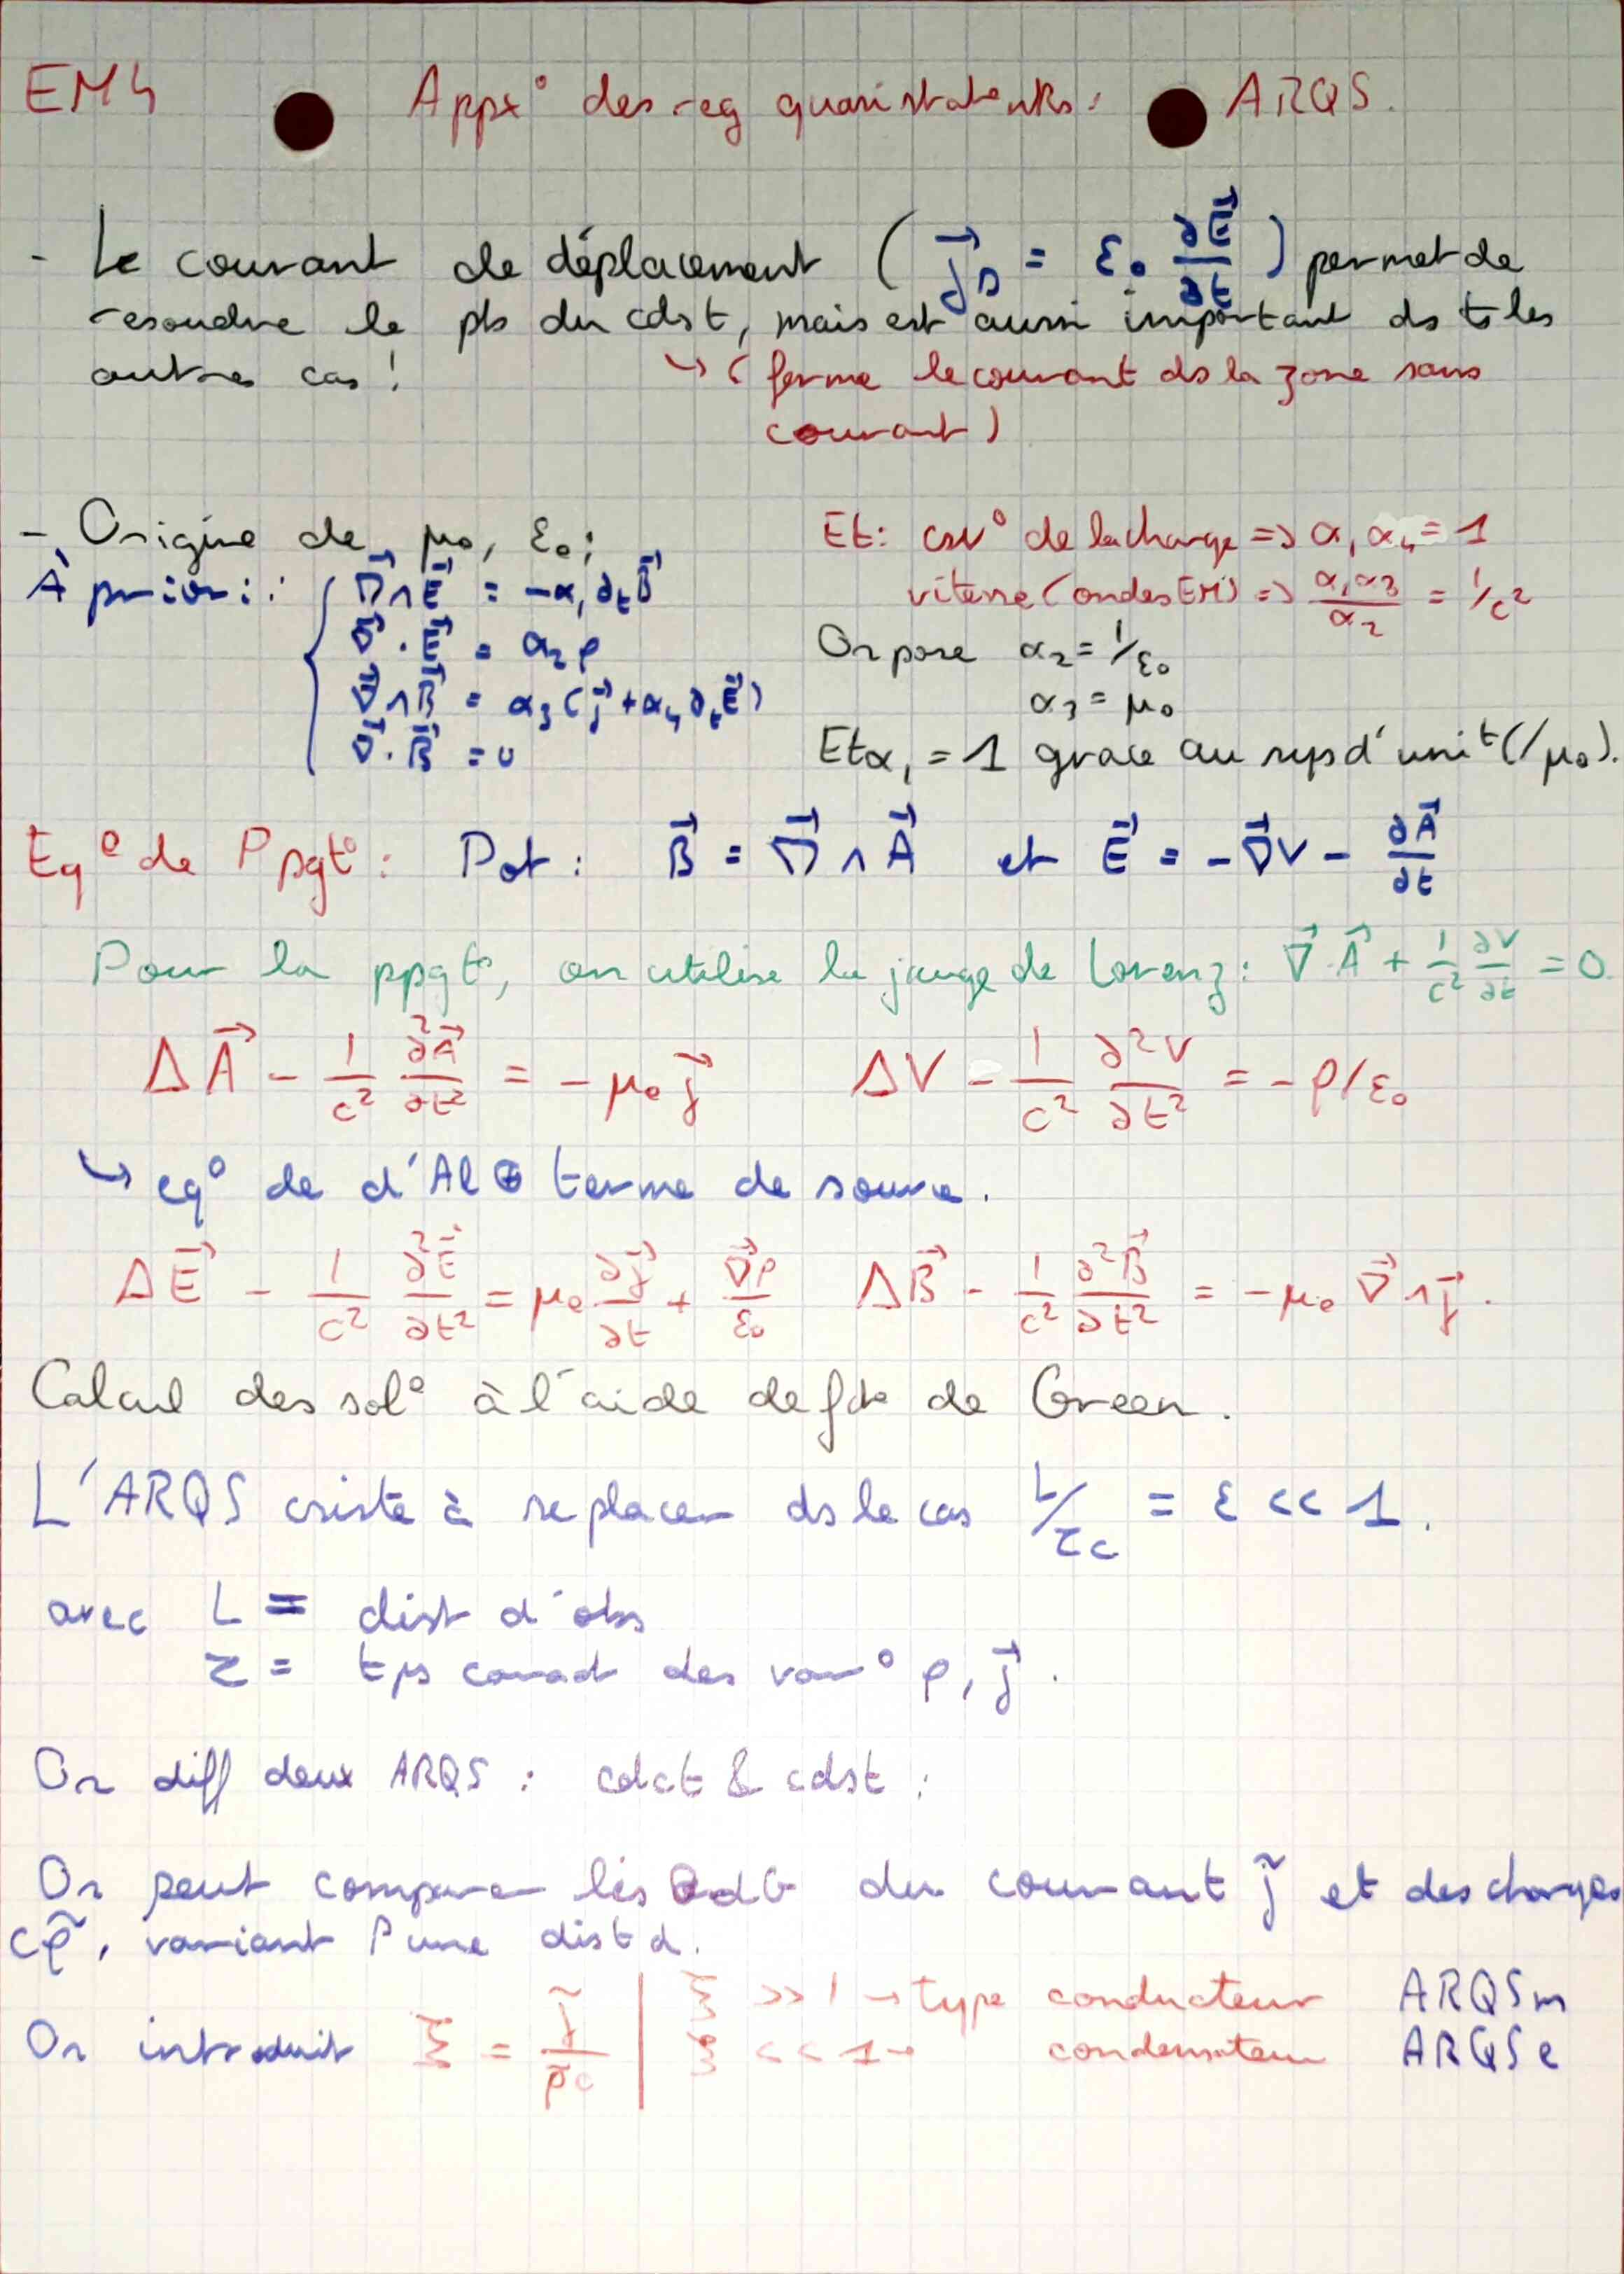 EM4 Appx° des reg quasistatiques: ARQS.
- Le courant de déplacement (j⃗_D = ε₀ ∂E⃗/∂t) permet de
resoudre le pb du cdst, mais est aussi important ds ts les
autres cas !
↳ (ferme le courant ds la zone sans
courant)
- Origine de μ₀, ε₀ :
À priori : { ∇⃗∧E⃗ = -α₁∂ₜB⃗
∇⃗·E⃗ = α₂ρ
∇⃗∧B⃗ = α₃(j⃗+α₄∂ₜE⃗)
∇⃗·B⃗ = 0
Et: csv° de la charge => α₁α₄ = 1
vitesse (ondes EM) => α₁α₃/α₂ = 1/c²
On pose α₂ = 1/ε₀
α₃ = μ₀
Et α₁ = 1 grace au sys d'unit (/μ₀).
Eq° de Ppgt° : Pot : B⃗ = ∇⃗∧A⃗ et E⃗ = -∇⃗V - ∂A⃗/∂t
Pour la ppgt°, on utilise la jauge de Lorenz : ∇⃗·A⃗ + 1/c² ∂V/∂t = 0.
ΔA⃗ - 1/c² ∂²A⃗/∂t² = -μ₀j⃗ ΔV - 1/c² ∂²V/∂t² = -ρ/ε₀
↳ eq° de d'Al ⊕ terme de source.
ΔE⃗ - 1/c² ∂²E⃗/∂t² = μ₀ ∂j⃗/∂t + ∇⃗ρ/ε₀ ΔB⃗ - 1/c² ∂²B⃗/∂t² = -μ₀ ∇⃗∧j⃗.
Calcul des sol° à l'aide de fct de Green.
L'ARQS csiste à se placer ds le cas L/τc = ε << 1.
avec L = dist d'obs
τ = tps caract des var° ρ, j⃗.
On diff deux ARQS : cdct & cdst :
On peut comparer les OdG du courant j̃ et des charges
cρ̃, variant P une dist d.
On introduit ξ = j̃/ρ̃c | ξ >> 1 → type conducteur ARQSm
ξ << 1 → condensateur ARQSe